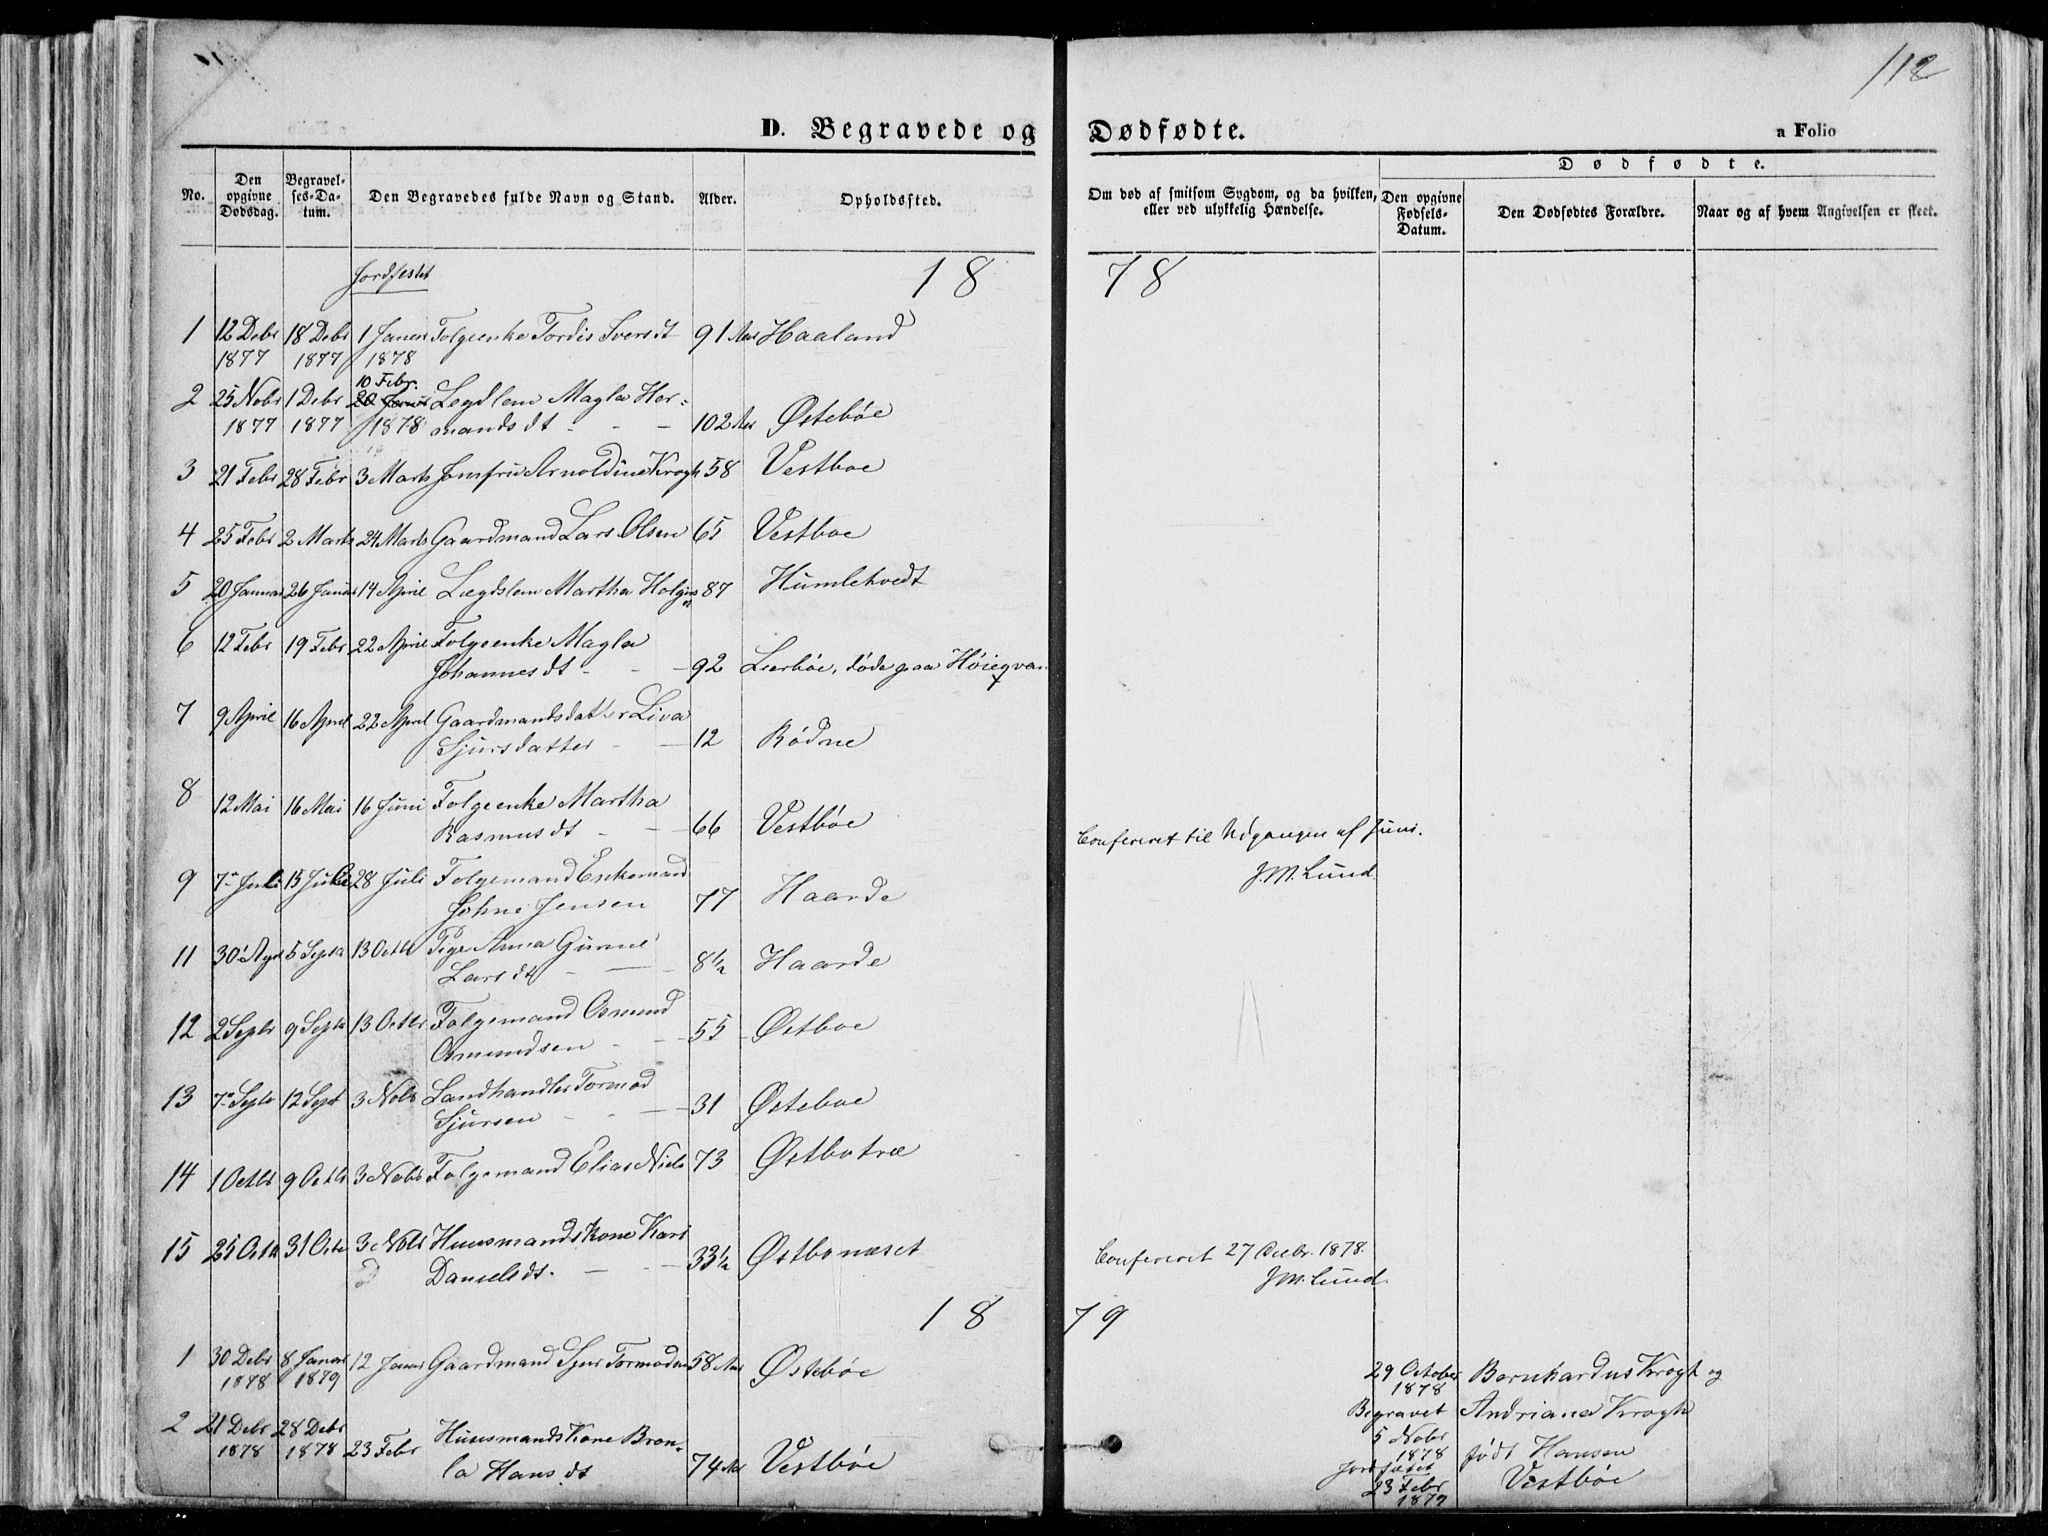 112
D. Begravede og Dødfødte.
a Folio
No.
Den opgivne Dødsdag.
Begravelses-Datum.
Den Begravedes fulde Navn og Stand.
Alder.
Opholdssted.
Om død af smitsom Sygdom, og da hvilken, eller ved ulykkelig Hændelse.
Dødfødte.
Den opgivne Fødsels-Datum.
Den Dødfødtes Forældre.
Naar og af hvem Angivelsen er skeet.
Jordfestet
1878
1 12 Debr 18 Debr 1 Januar Folgeenke Tordis Iversdt 91 Aar Haaland
1877 1877 1878
10 Febr.
2 25 Nobr 1 Debr 20 Januar Legdlem Magla Hor-
1877 1877 1878 mandsdt - - 102 Aar Østebøe
3 21 Febr 28 Febr 3 Marts Jomfru Arnoldine Krogh 58 Vestboe
4 25 Febr 2 Marts 24 Marts Gaardmand Lars Olsen 65 Vestboe
5 20 Januar 26 Januar 14 April Lægdslem Martha Holgers 87 Humlekvedt
6 12 Febr 19 Febr 22 April Folgeenke Magla
Johannesdt - - 92 Leerbøe, døde paa Høiegva
7 9 April 16 April 22 April Gaardmandsdatter Liva
Sjursdatter - - 12 Rødne
8 12 Mai 16 Mai 16 Juni Folgeenke Martha
Rasmusdt - - 66 Vestbøe
Confereret til Udgangen af Juni.
J.M. Lund.
9 7de Juli 15 Juli 28 Juli Folgemand Enkemand
Johne Jensen 77 Haarde
11 30 Aug 5 Septr 13 Octb Pige Anna Gurine
Larsdt - - 8½ Haarde
12 2 Septr 9 Septr 13 Octbr Folgemand Osmund
Osmundsen - - 55 Østboe
13 7de Septr 12 Sept 3 Nobr Landhandler Tormod
Sjursen - - 31 Østeboe
14 1 Octbr 9 Octbr 3 Nobr Folgemand Elias Niels 73 Østbotræ
15 25 Octb 31 Octb 3 Nobr Huusmandskone Kari
Danielsdt. - - 33½ Østbonæset
Confereret 27 Decbr. 1878.
J.M. Lund.
1879
1 30 Debr 8 Januar 12 Januar Gaardmand Sjur Tormodsen 58 Aar Østebøe
1878 1879
2 21 Debr 28 Debr 23 Febr Huusmandskone Bron-
1878 1878 la Hansdt 74 Aar Vestbøe
29 October Bernhardus Krogh og
1878
Begravet Andriana Krogh
5 Nobr
1878 født Hansen
Jordfæstet Vestbøe
23 Febr
1879